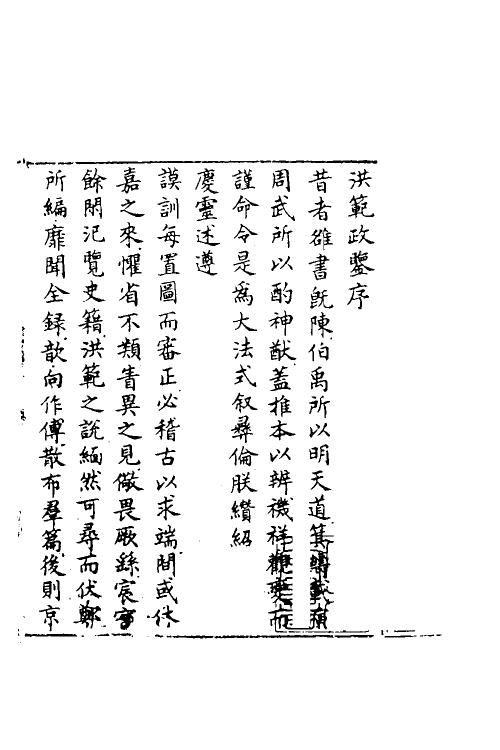 洪範政鑒序
昔者雒書既陳伯禹所以明天道箕疇載
周武所以酌神猷蓋推本以辨禨祥觀變而
謹命令是爲大法式叙彞倫朕纘紹
慶靈述遵
謨訓每置圖而審正必稽古以求端間或休
嘉之來懼省不類眚異之見儆畏厥繇宸
餘閑汜覽史籍洪範之說緬然可尋而伏鄭
所編靡聞全録歆向作傳散布羣篇後則京